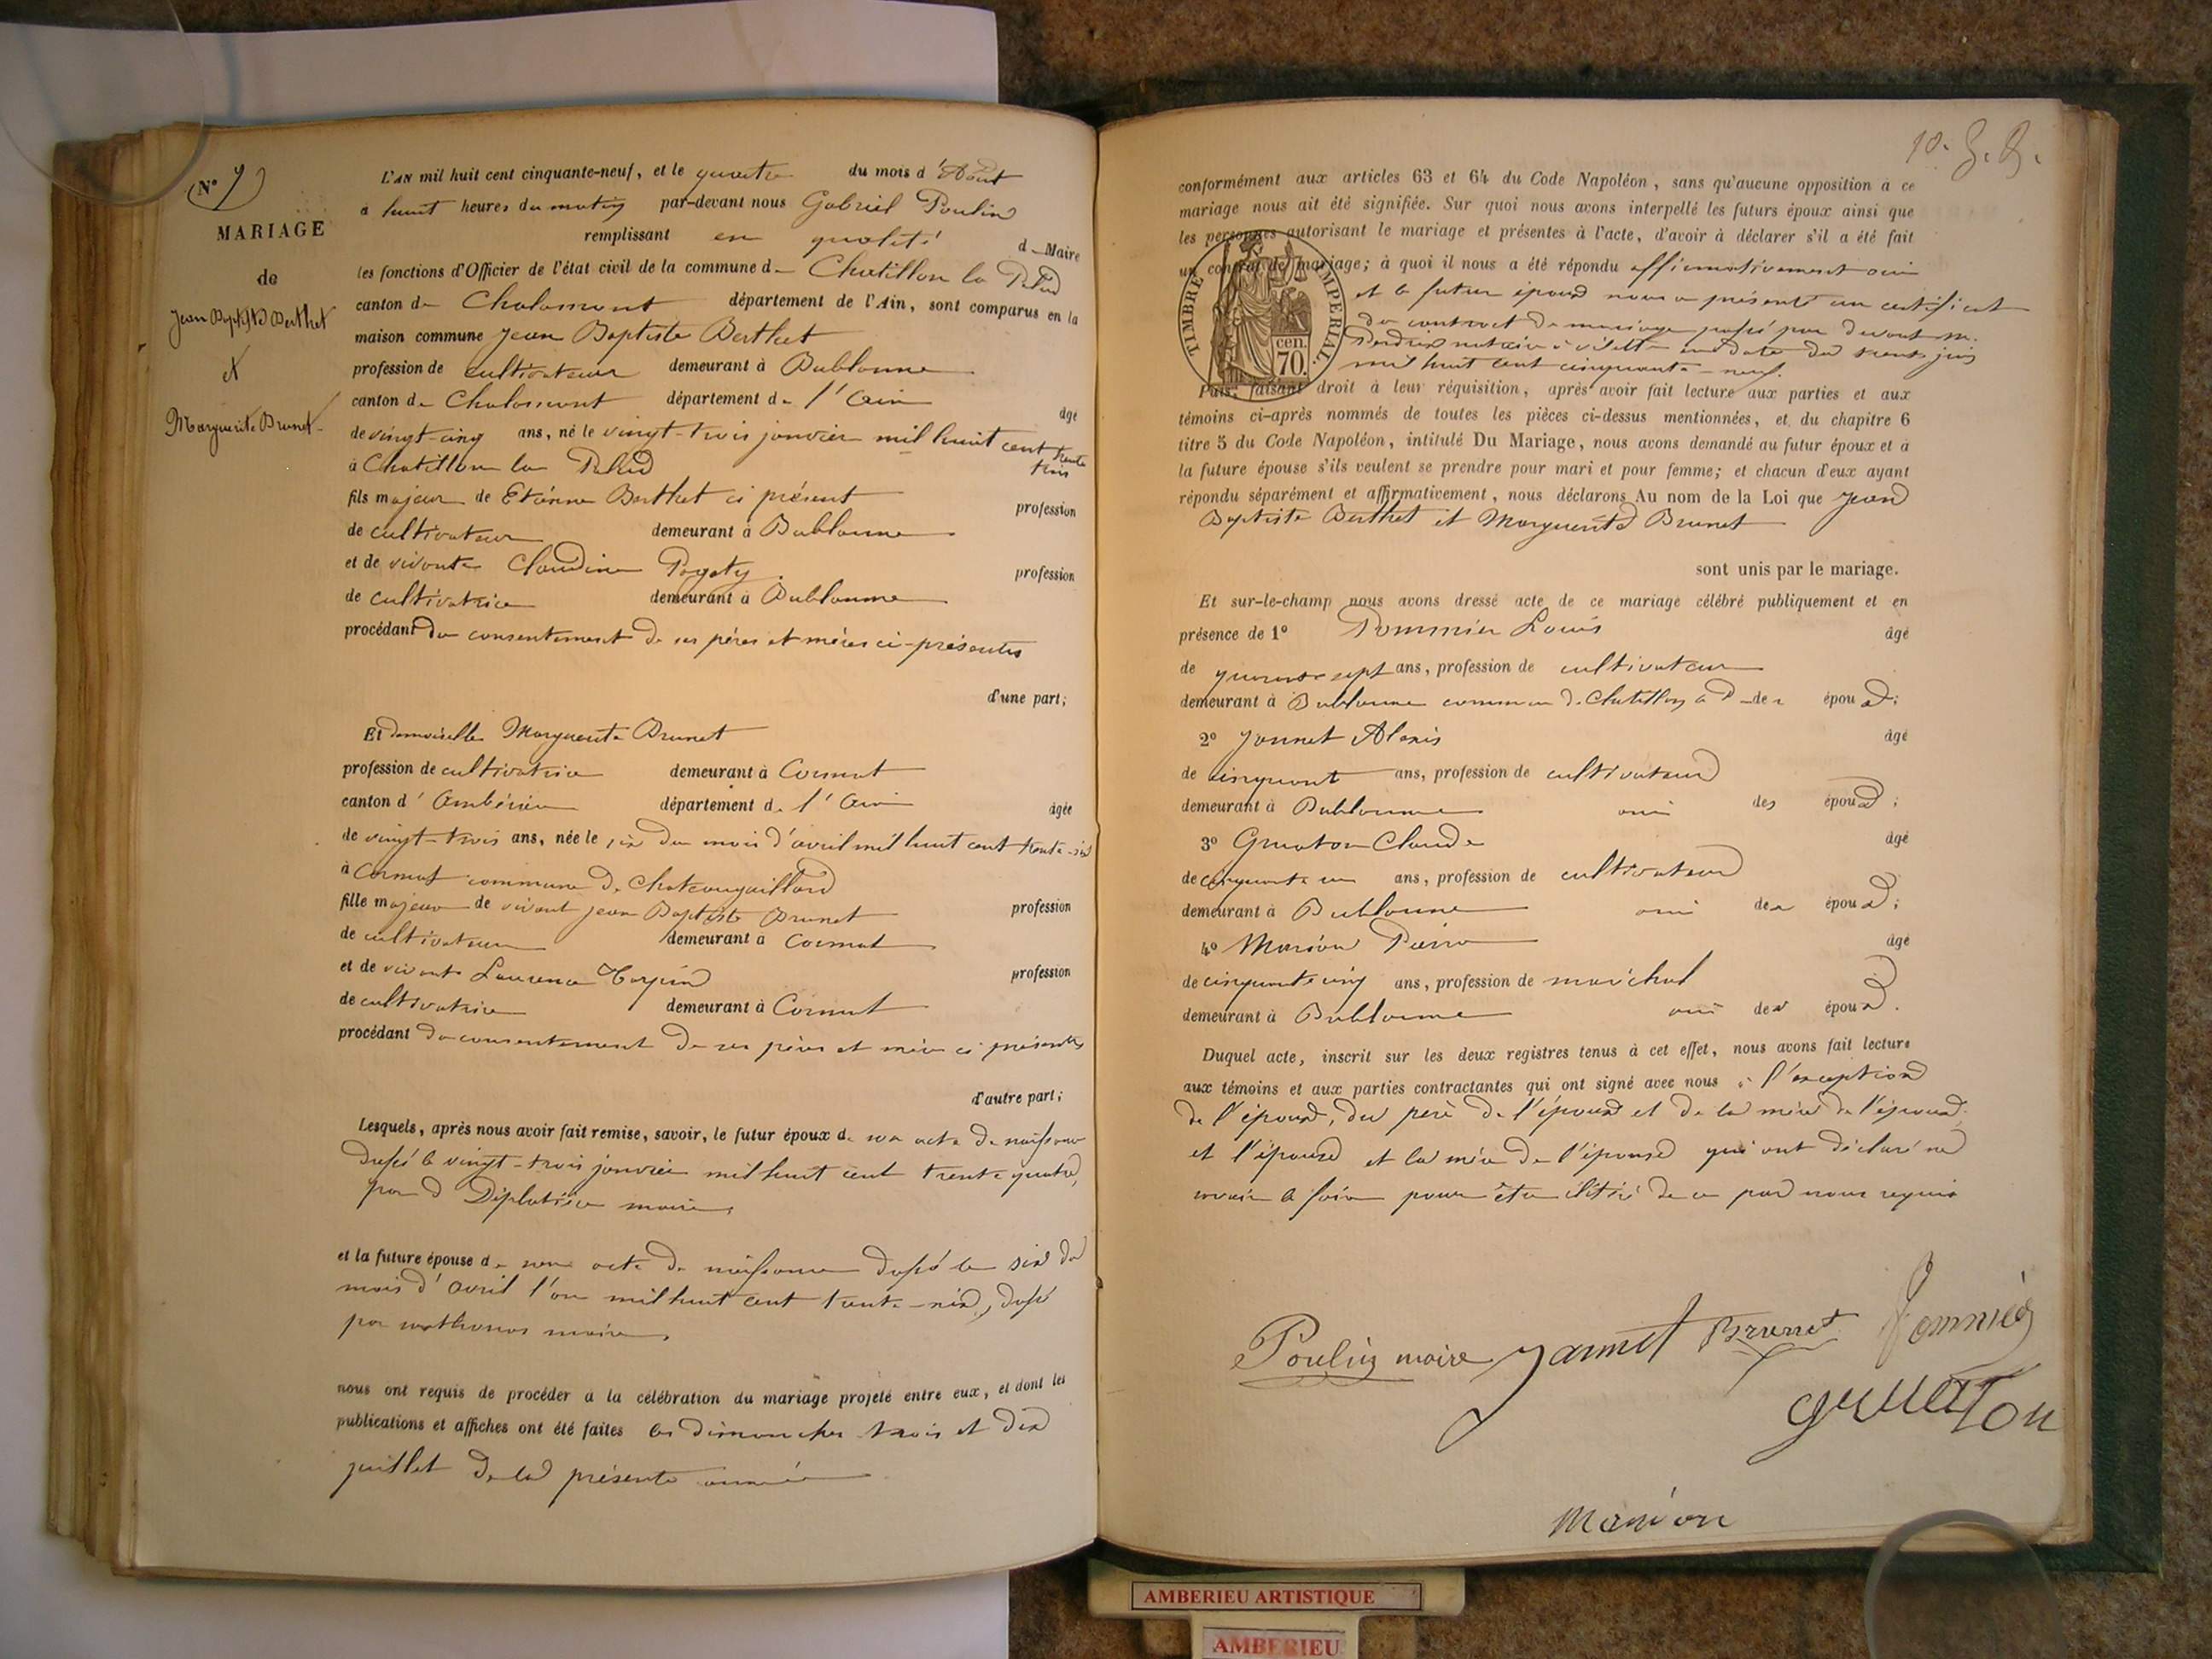 (N° 9)
MARIAGE
de
Jean Baptiste Berthet
et
Marguerite Brunet
L'AN mil huit cent cinquante-neuf, et le quatre du mois d'Août
a huit heures du matin par-devant nous Gabriel Poulin
remplissant en qualité d Maire
les fonctions d'Officier de l'état civil de la commune de Chatillon la Palud
canton de Chalamont département de l'Ain, sont comparus en la
maison commune Jean Baptiste Berthet
profession de cultivateur demeurant à Bublanne
canton de Chalamont département de l'Ain âgé
de vingt-cinq ans, né le vingt-trois janvier mil huit cent trente
trois
à Chatillon la Palud
fils majeur de Etienne Berthet ci présent profession
de cultivateur demeurant à Bublanne
et de vivante Claudine profession
de cultivatrice demeurant à Bublanne
procédant du consentement de ses pères et mères ci-présents
d'une part;
Et demoiselle Marguerite Brunet
profession de cultivatrice demeurant à Cormoz
canton d'Ambérieu département de l'Ain âgée
de vingt-trois ans, née le six du mois d'avril mil huit cent trente-six
à commune de Chateaugaillard
fille majeure de vivant Jean Baptiste Brunet profession
de cultivateur demeurant à
et de vivante Laurence profession
de cultivatrice demeurant à
procédant du consentement de ses père et mère ci présents
d'autre part;
Lesquels, après nous avoir fait remise, savoir, le futur époux de son acte de naissance
dressé le vingt-trois janvier mil huit cent trente quatre,
par maire,
et la future épouse de son acte de naissance dressé le six du
mois d'avril l'an mil huit cent trente-six, dressé
par maire,
nous ont requis de procéder a la célébration du mariage projeté entre eux, et dont les
publications et affiches ont été faites les dimanches trois et dix
juillet de la présente année
10. G. B.
conformément aux articles 63 et 64 du Code Napoléon, sans qu'aucune opposition à ce
mariage nous ait été signifiée. Sur quoi nous avons interpellé les futurs époux ainsi que
les personnes autorisant le mariage et présentes à l'acte, d'avoir à déclarer s'il a été fait
un contrat de mariage; à quoi il nous a été répondu affirmativement oui
et le futur époux nous a présenté un certificat
de contract de mariage passé par devant m.
notaire à en date du trente juin
mil huit cent cinquante-neuf.
TIMBRE IMPERIAL.
cen.
70.
Puis, faisant droit à leur réquisition, après avoir fait lecture aux parties et aux
témoins ci-après nommés de toutes les pièces ci-dessus mentionnées, et du chapitre 6
titre 5 du Code Napoléon, intitulé Du Mariage, nous avons demandé au futur époux et à
la future épouse s'ils veulent se prendre pour mari et pour femme; et chacun d'eux ayant
répondu séparément et affirmativement, nous déclarons Au nom de la Loi que Jean
Baptiste Berthet et Marguerite Brunet
sont unis par le mariage.
Et sur-le-champ nous avons dressé acte de ce mariage célébré publiquement et en
présence de 1° Pommier Louis âgé
de quarante sept ans, profession de cultivateur
demeurant à Bublanne commune de Chatillon la P des époux;
2° Jannet Alexis âgé
de cinquante ans, profession de cultivateur
demeurant à Bublanne ami des époux;
3° Gruaton Claude âgé
de cinquante un ans, profession de cultivateur
demeurant à Bublanne ami des époux;
4° Manion Pierre âgé
de cinquante cinq ans, profession de maréchal
demeurant à Bublanne ami des époux.
Duquel acte, inscrit sur les deux registres tenus à cet effet, nous avons fait lecture
aux témoins et aux parties contractantes qui ont signé avec nous à l'exception
de l'époux, du père de l'époux et de la mère de l'époux
et l'épouse et la mère de l'épouse qui ont déclaré ne
pour de ce par nous requis
Poulin maire Jannet Brunet Pommier
gruatton
Manion
AMBERIEU ARTISTIQUE
AMBERIEU